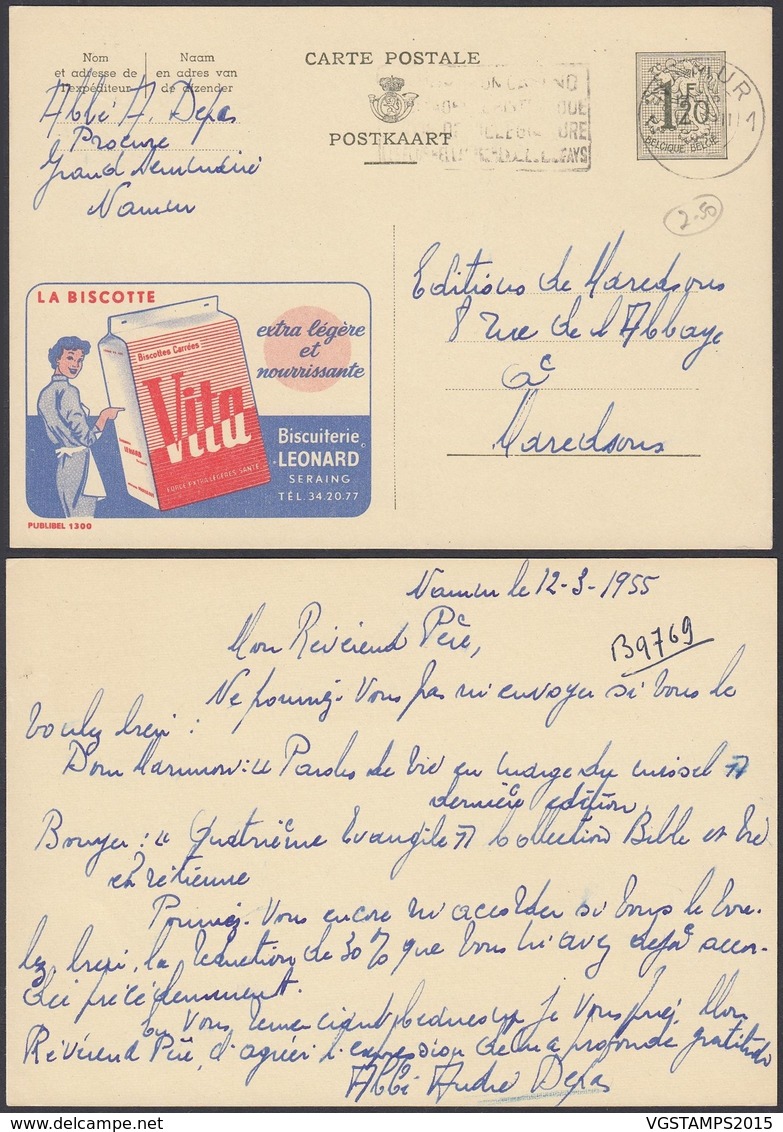 Nom
et adresse de
l'expéditeur
Naam
en adres van
de afzender
CARTE POSTALE
POSTKAART
1F20
BELGIQUE-BELGIE
Abbé A. Depas
Procure
Grand Séminaire
Namur
2-50
Editions de Maredsous
8 rue de l'Abbaye
à
Maredsous
LA BISCOTTE
extra légère
et
nourrissante
Biscottes Carrées
Vita
Biscuiterie
LEONARD
SERAING
TÉL. 34.20.77
PUBLIBEL 1300
Namur le 12-3-1955
Mon Révérend Père,
B9769
Ne pourriez-Vous pas m'envoyer si Vous le
voulez bien :
Dom Marmion : " Paroles de Vie en marge du missel "
dernière édition.
Bouyer : " Quatrième Evangile " collection Bible et Vie
chrétienne
Pourriez-Vous encore m'accorder si Vous le vou-
lez bien, la réduction de 30% que Vous m'avez déjà accor-
dée précédemment.
En Vous remerciant beaucoup je Vous prie, Mon
Révérend Père, d'agréer l'expression de ma profonde gratitude
Abbé André Depas
VGSTAMPS2015